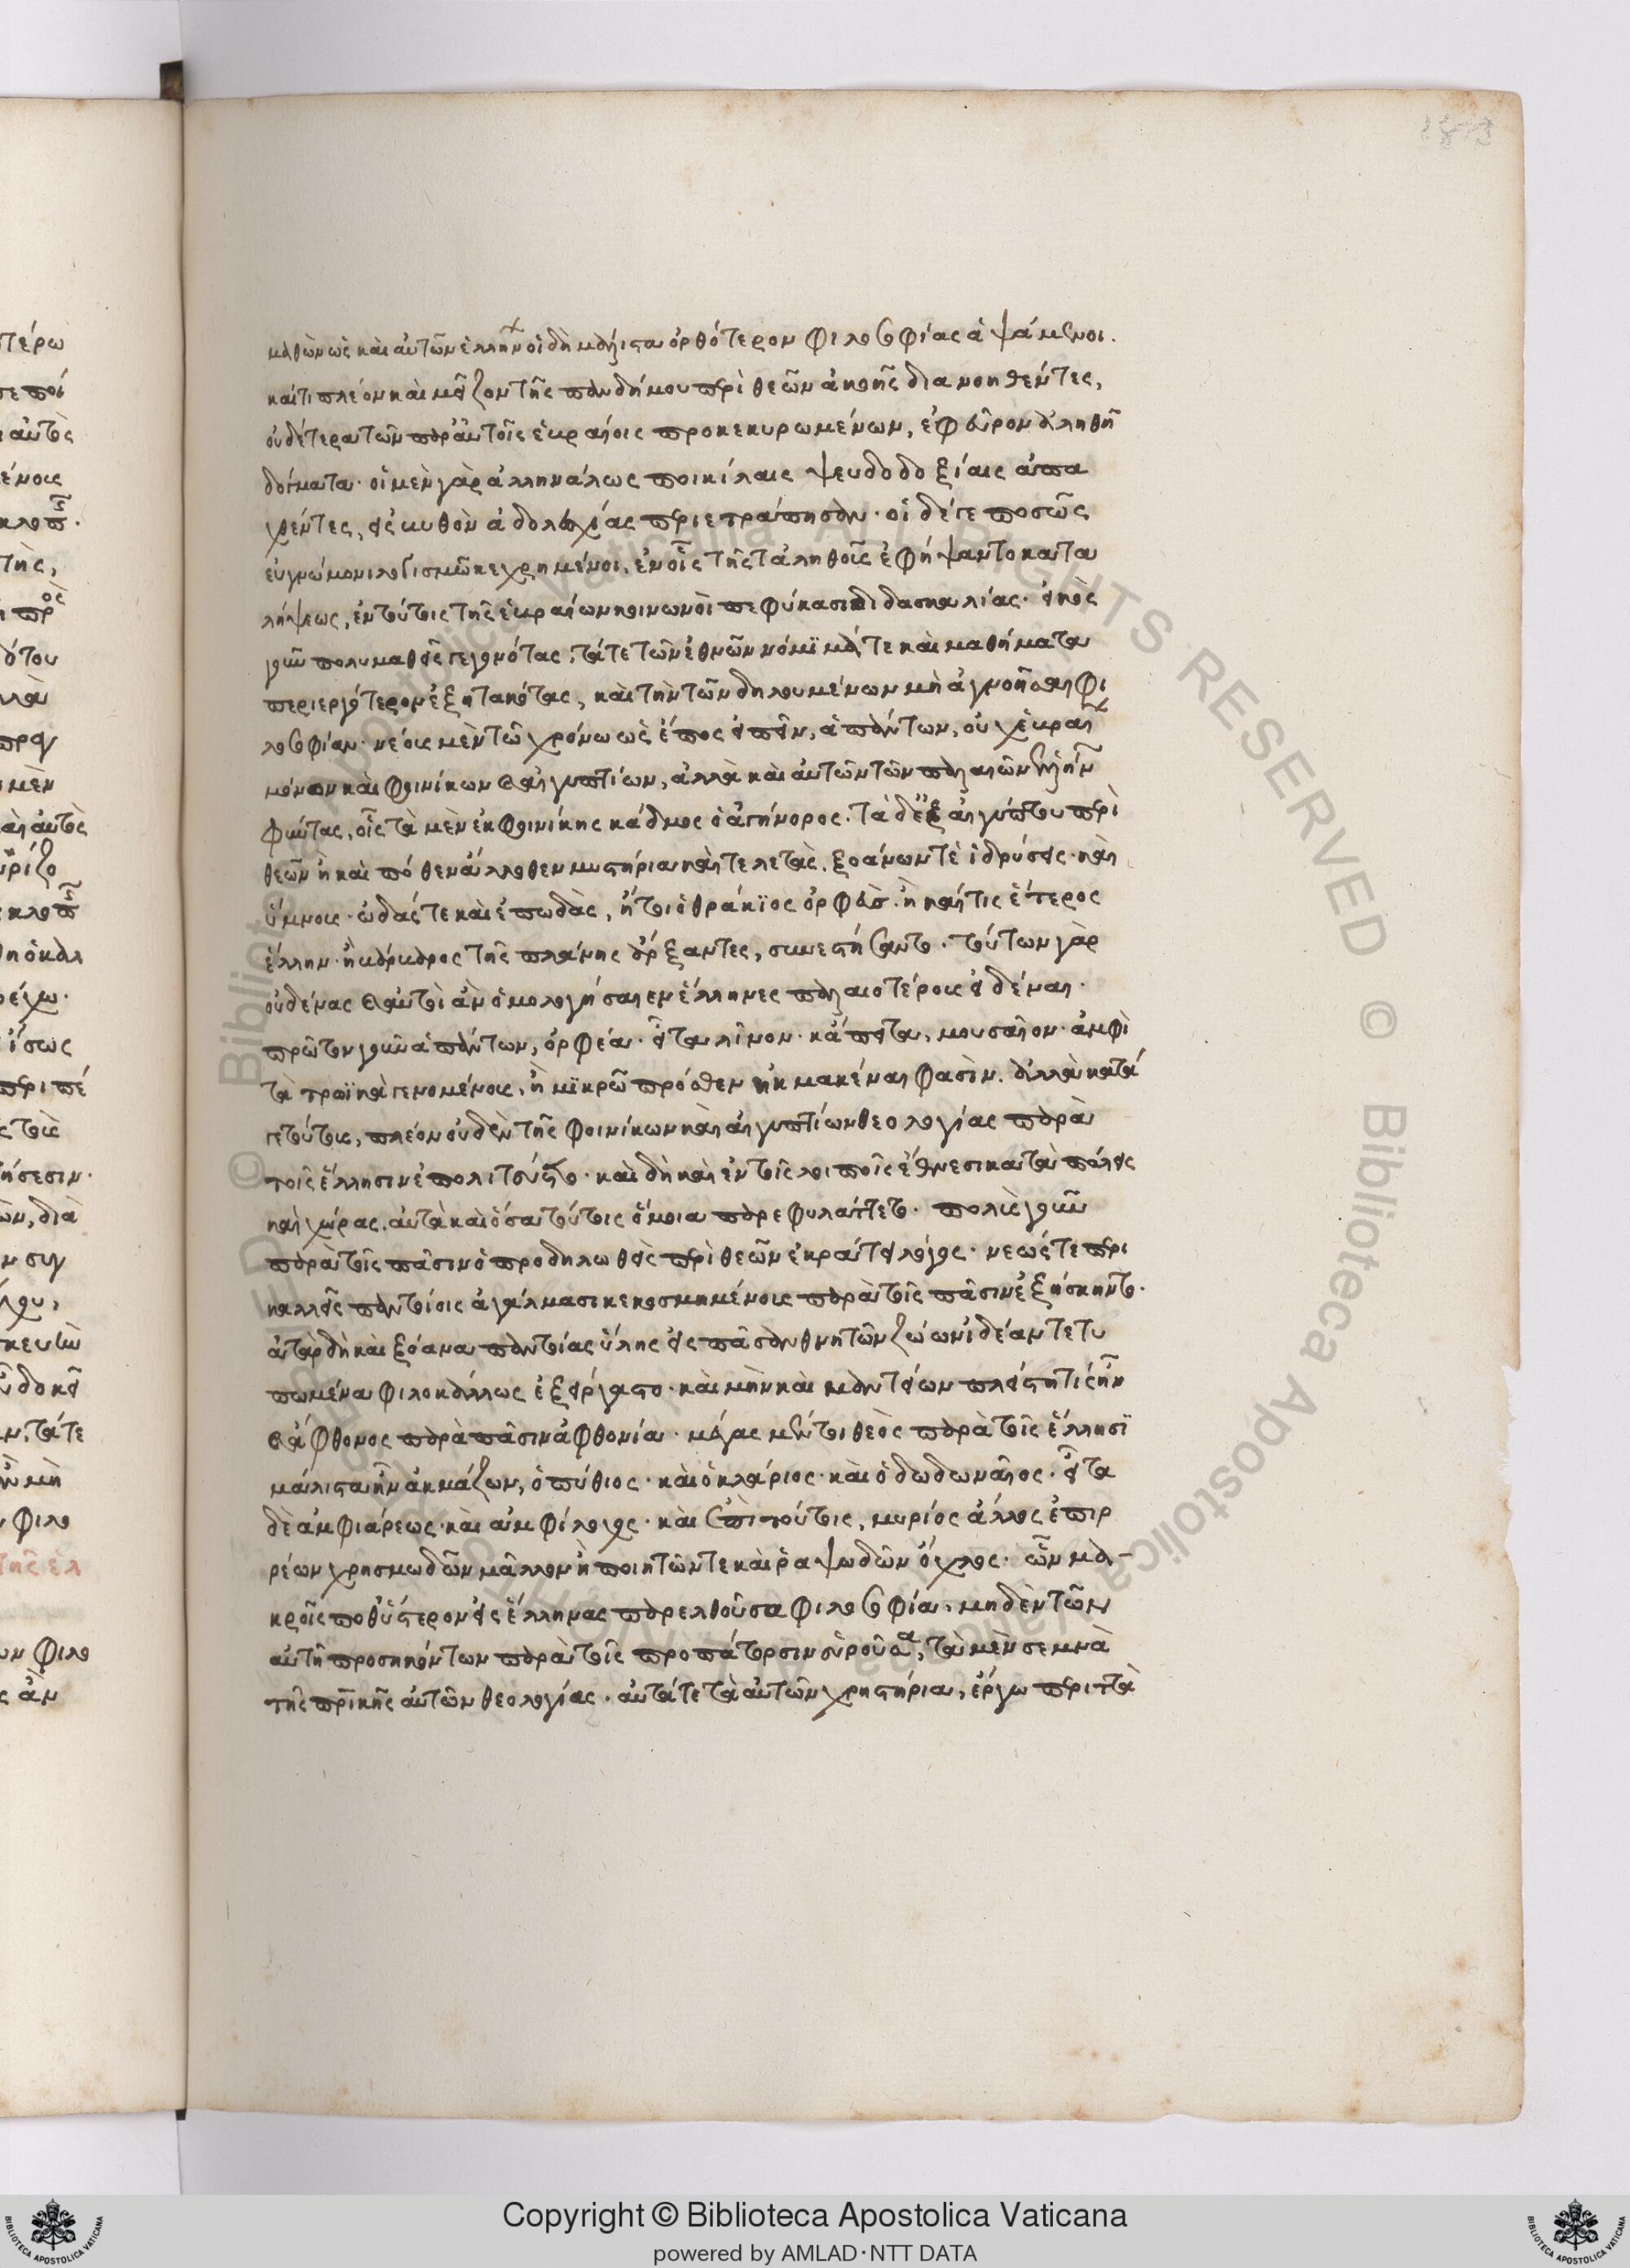 μαθὼν ὡς καὶ αὐτῶν ἑλλήνων οἱ δὴ μάλιστα ὀρθότερον φιλοσοφίας ἁψάμενοι.
καίτι πλέον καὶ μεῖζον τῆς πανδήμου περὶ θεῶν ἀκοῆς διανοηθέντες,
οὐδέτερα τῶν παρ' αὐτοῖς ἑβραίοις προκεκυρωμένων, ἐφεῦρον ἀληθῆ
δόγματα· οἱ μὲν γὰρ ἀλλην ἄλλως ποικίλαις ψευδοδοξίαις ἀπα
χθέντες, εἰς βυθὸν ἀδολεσχίας περιετράπησαν· οἱ δέ γε ποσῶς
εὐγνώμονι λογισμῶ κεχρημένοι, ἐν οἷς τῆς τἀληθοῦς ἐφήψαντο κατα
λήψεως, ἐν τούτοις τῆς ἑβραίων κοινωνοὶ πεφύκασι διδασκαλίας· εἰκὸς
γοῦν πολυμαθεῖς γεγονότας, τά τε τῶν ἐθνῶν νόμιμά τε καὶ μαθήματα
περιεργότερον ἐξητακότας, καὶ τὴν τῶν δηλουμένων μὴ ἀγνοῆσαι φι
λοσοφίαν· νέους μὲν τῶ χρόνω ὡς ἔπος εἰπεῖν, ἁπάντων, οὐχ ἑβραίων
μόνον καὶ φοινίκων καὶ αἰγυπτίων, ἀλλὰ καὶ αὐτῶν τῶν παλαιῶν ἑλλήνων
φύντας, οἷς τὰ μὲν ἐκ φοινίκης κάδμος ὁ ἀγήνορος. τὰ δ' ἐξ αἰγύπτου περὶ
θεῶν ἢ καὶ πόθεν ἄλλοθεν μυστήρια καὶ τελετὰς. ξοάνων τὲ ἱδρύσεις· καὶ
ὕμνους· ὠδάς τε καὶ ἐπωδὰς, ἤτοι ὁ θράκϊος ὀρφεὺς. ἢ καί τις ἕτερος
ἕλλην· ἢ βάρβαρος τῆς πλάνης ἄρξαντες, συνεστήσαντο. τούτων γὰρ
οὐδένας καὶ αὐτοὶ ἂν ὁμολογήσαιεν ἕλληνες παλαιοτέρους εἰδέναι·
πρῶτον γοῦν ἁπάντων, ὀρφέα· εἶτα λῖνον· κἄπειτα, μουσαῖον· ἀμφὶ
τὰ τρωϊκὰ γενομένους, ἢ μϊκρῶ πρόσθεν ἠκμακέναι φασὶν. ἀλλὰ κατά
γε τούτους, πλέον οὐδὲν τῆς φοινίκων καὶ αἰγυπτίων θεολογίας παρὰ
τοῖς ἕλλησιν ἐπολιτεύετο· καὶ δὴ καὶ ἐν τοῖς λοιποῖς ἔθνεσι κατὰ πόλεις
καὶ χώρας. αὐτὰ καὶ ὅσα τούτοις ὅμοια παρεφυλάττετο· πολὺς γοῦν
παρὰ τοῖς πᾶσιν ὁ προδηλωθεὶς περὶ θεῶν ἐκράτει λόγος· νεώς τε περι
καλλεῖς παντοίοις ἀγάλμασι κεκοσμημένους παρὰ τοῖς πᾶσιν ἐξήσκηντο·
ἀτὰρ δὴ καὶ ξόανα παντοίας ὕλης εἰς πᾶσαν θνητῶν ζώων ἰδέαν τετυ
πωμένα φιλοκάλως ἐξείργαστο· καὶ μὴν καὶ μαντείων πλείστη τίς ἦν
καὶ ἄφθονος παρὰ πᾶσιν ἀφθονία· μέγας μέντοι θεὸς παρὰ τοῖς ἕλλησϊ
μάλιστα ἦν ἀκμάζων, ὁ πύθιος· καὶ ὁ κλάριος· καὶ ὁ δωδωναῖος· εἶτα
δὲ ἀμφιάρεως· καὶ ἀμφίλοχος· καὶ ἐπὶ τούτοις, μυρίος ἄλλος ἐπιρ
ρέων χρησμωδῶν μᾶλλον ἢ ποιητῶν τε καὶ ῥαψωδῶν ὄχλος· ὧν μα-
κροῖς ποθ' ὕστερον εἰς ἕλληνας παρελθοῦσα φιλοσοφία, μηδὲν τῶν
αὐτῆ προσηκόντων παρὰ τοῖς προπάτορσιν εὑροῦσα, τὰ μὲν σεμνὰ
τῆς πατρικῆς αὐτῶν θεολογίας. αὐτά τε τὰ αὐτῶν χρηστήρια, ἔργω περιττὰ